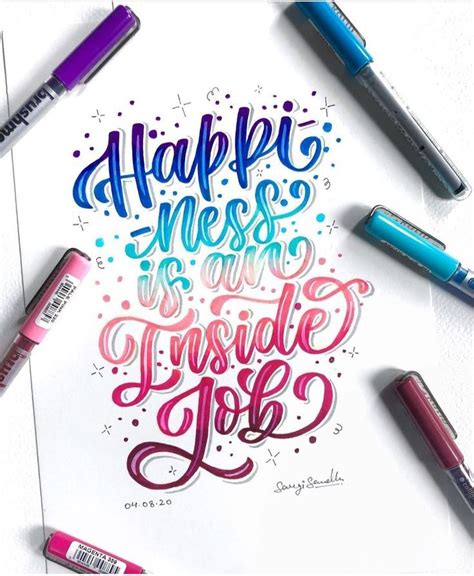 brushm
Happi-
-ness
is an
Inside
Job
04.08.20
MAGENTA 359